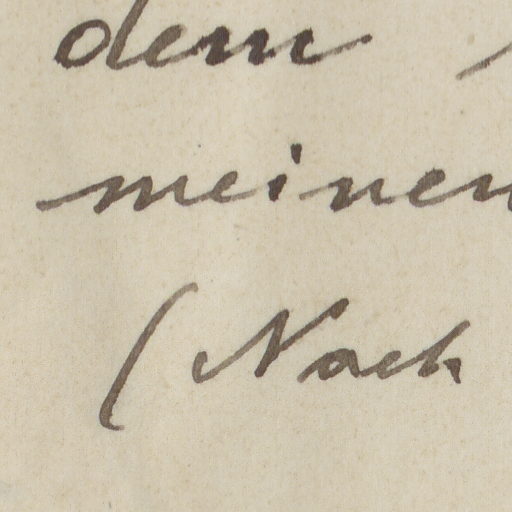 dem
meinen
(Nach